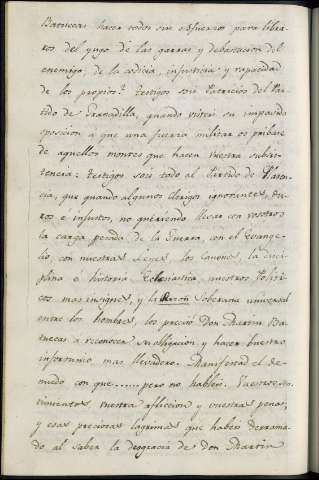 Batuecas hacer todos sus esfuerzos para libra-
ros del yugo de las garras y debastacion del
enemigo, de la codicia, injusticia y rapacidad
de los propios? Testigos sois Patricios del Par-
tido de Granadilla, quando visteis su impavida
oposicion á que una fuerza militar os pribare
de aquellos montes que hacen vuestra subsis-
tencia: Testigos sois todo el Partido de
cia, que quando algunos clerigos ignorantes, du-
ros e injustos, no queriendo llevar con vosotros
la carga pesada de la Guerra, con el Evange-
lio, con nuestras Leyes, los Canones, la disci-
plina é historia Eclesiastica, nuestros Politi-
cos mas insignes, y la Razon Soberana universal
entre los hombres, los precisó Don Martin Ba-
tuecas á reconocer su obligacion y hacer vuestro
infortunio mas llevadero. Manifestad el de-
nuedo con que ...... pero no hableis. Vuestros sen-
timientos, vuestra afliccion y vuestras penas,
y esas preciosas lagrimas que habeis derrama-
do al saber la desgracia de Don Martin